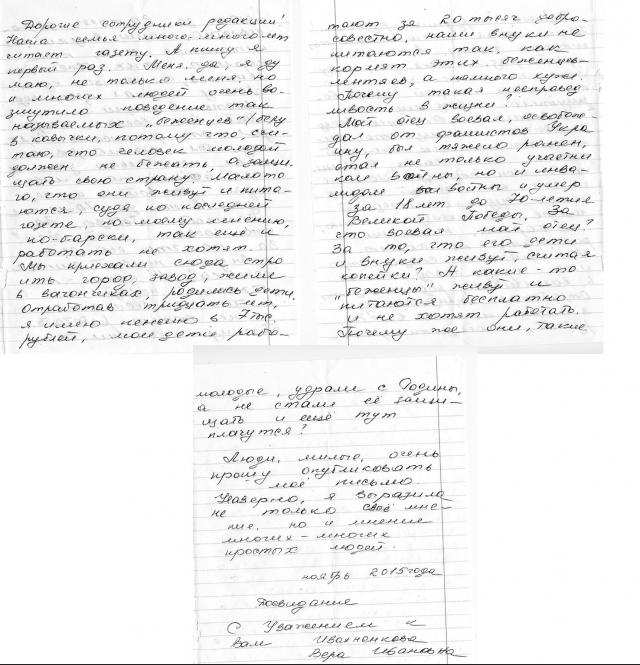 Дорогие сотрудники редакции!
Наша семья много-много лет
читает газету. А пишу я
первый раз. Меня, да, я ду
маю, не только меня, но
и многих людей очень во-
змутило поведение так
называемых "беженцев" /беру
в кавычки, потому что, счи-
таю, что человек молодой
должен не бежать, а защи-
щать свою страну. Мало то
го, что они живут и пита-
ются, судя по последней
газете, по-моему мнению,
по-барски, так ещё и
работать не хотят.
Мы приехали сюда стро
ить город, завод, жили
в вагончиках, родились дети.
Отработав тридцать лет,
я имею пенсию в 7 тыс.
рублей, мои дети рабо-
тают за 20 тысяч добро-
совестно, наши внуки не
питаются так, как
кормят этих беженцев-
а намного хуже.
Почему такая несправед
ливость в жизни?
Мой отец воевал, освобож-
дал от фашистов Укра
ину, был тяжело ранен,
стал не только участни
ком войны, но и инва-
лидом войны и умер
за 18 лет до 70-летия
Великой Победы. За
что воевал мой отец?
За то, что его дети
и внуки живут, считая
копейки? А какие-то
"беженцы" живут и
питаются бесплатно
и не хотят работать.
Почему же они, такие
молодые, удрали с Родины,
а не стали её защи-
щать и ещё тут
плачутся?
Люди, милые, очень
прошу опубликовать
моё письмо.
Наверно, я выразила
не только своё мне-
ние, но и мнение
многих-многих
простых людей.
ноябрь 2015 года
Досвидание
С Уважением к
Вам Иваненкова
Вера Ивановна